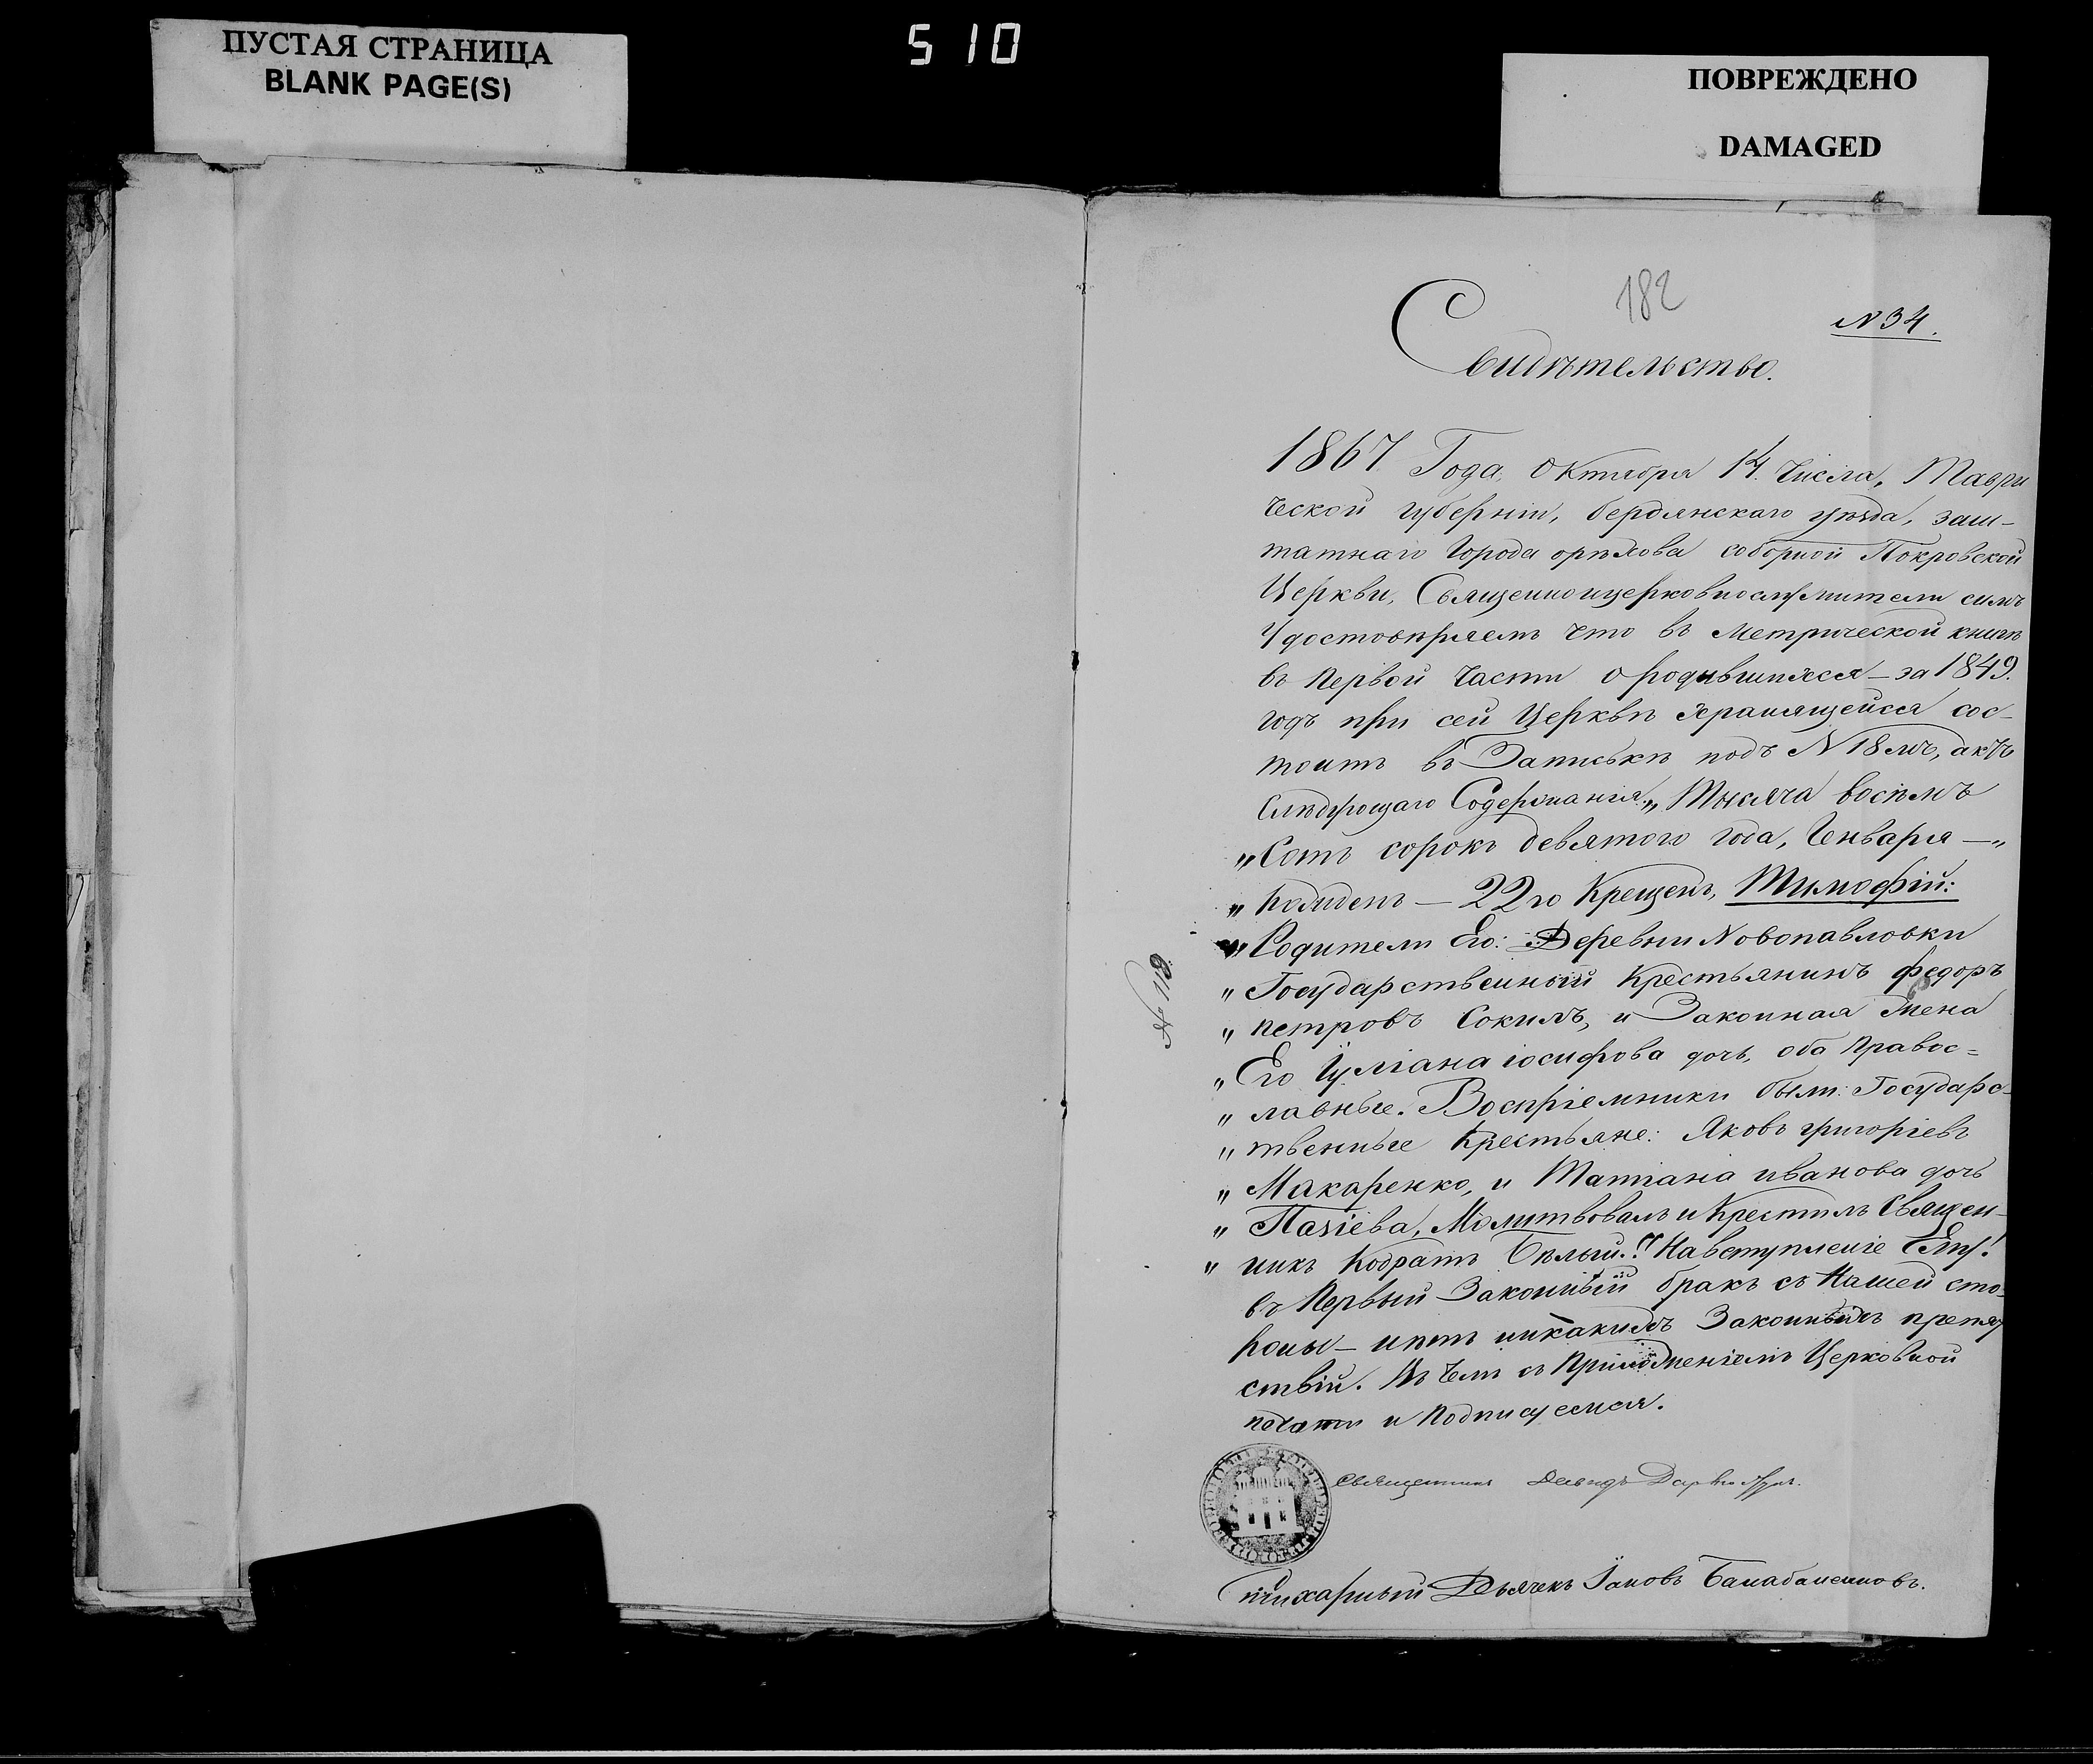 ПУСТАЯ СТРАНИЦА
BLANK PAGE(S)
510
ПОВРЕЖДЕНО
DAMAGED
182
N 34.
Свидѣтельство.
1867 Года, Октября 14. Числа, Таври
ческой губерніи, бердянскаго уѣзда, заш-
татнаго Города орѣхова соборной Покровской
Церкви, Священноицерковнослужители симъ
Удостовѣряемъ что въ Метрической книгѣ
въ Первой Части о родившихся – за 1849.
годъ при сей Церквѣ хранящейся сос-
тоитъ въ Запискѣ подъ N 18мъ, актъ
Слѣдующаго Содержанія. „Тысяча восѣмъ
„Сотъ сорокъ девятого года, Генваря — „
„ Рожденъ — 22го Крещенъ, Тимофій:
„ Родители Его: Деревни Новопавловки
„ Государственный Крестьянинъ федоръ
„ петровъ Сокилъ, и Законная Жена
„ Его Іуліана іосифова дочь, оба Правос=
„ лавные. Воспріемники были: Государс-
„ твенные Крестьяне: Яковъ григоріевъ
„ Макаренко, и Татіана иванова дочь
„ Молитвовалъ и Крестилъ Священ-
„ никъ Кодратъ Бѣлый." На вступленіе Ему!
въ Первый Законный бракъ съ Нашей сто-
роны – нѣтъ никакихъ Законныхъ препят
ствій. Въ Чемъ съ Приложеніемъ Церковной
печати и Подписуемся.
N 118.
Священникъ Давидъ
Яковъ